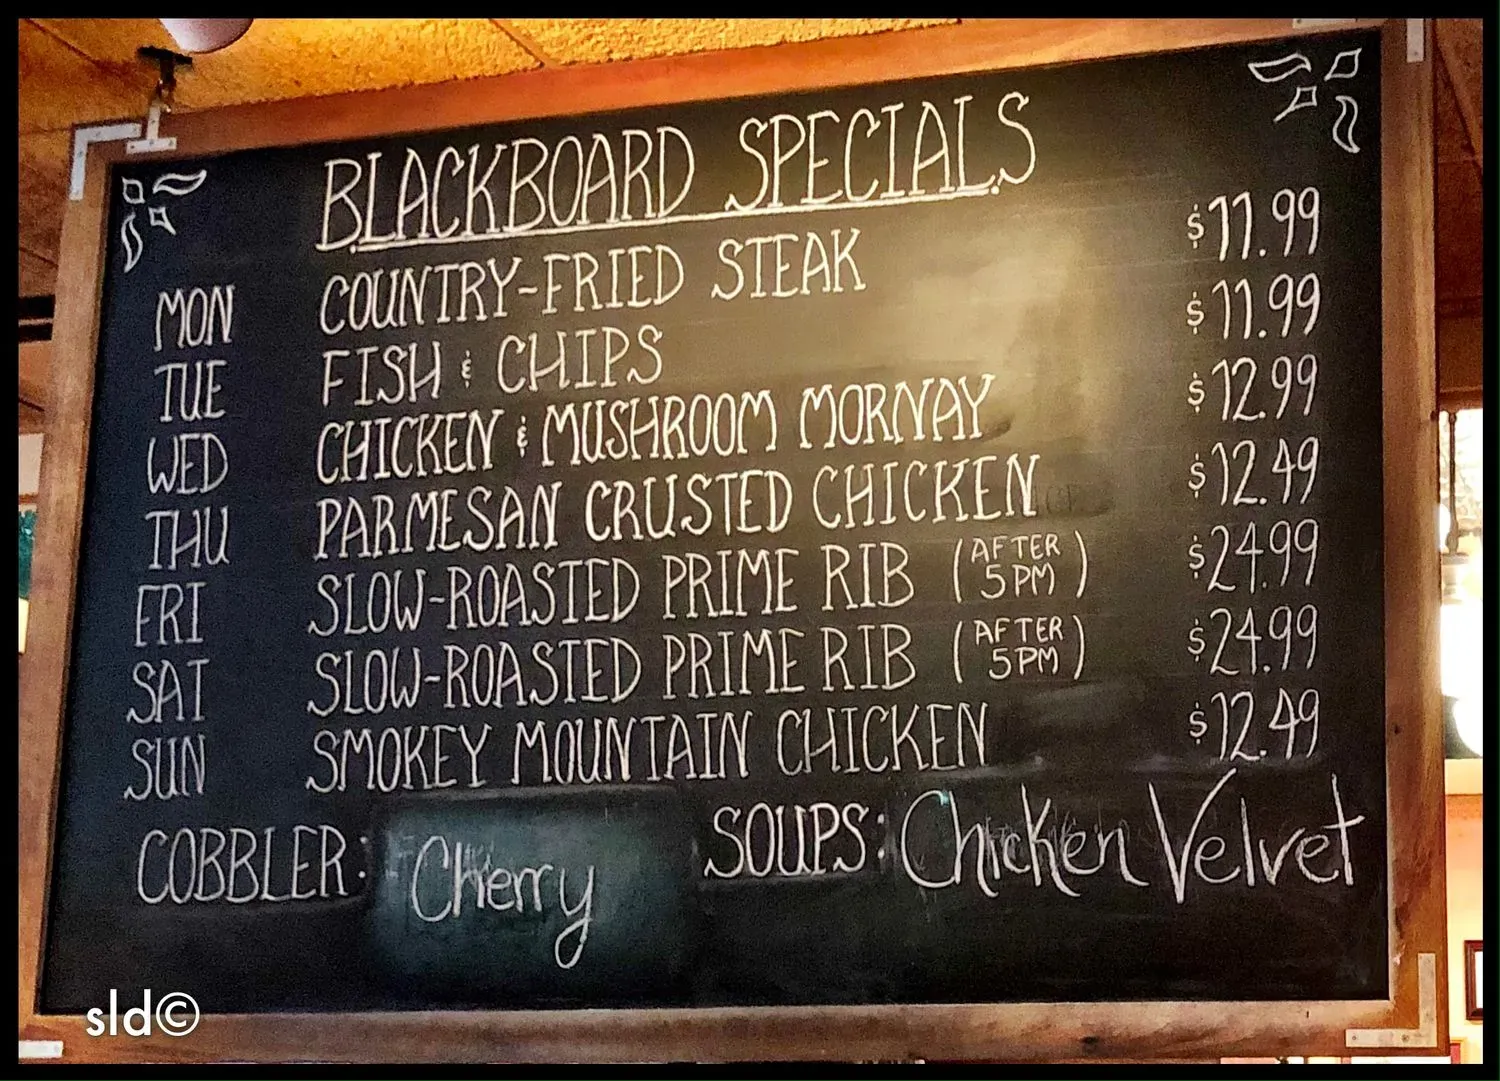 BLACKBOARD SPECIALS
MON COUNTRY-FRIED STEAK $11.99
TUE FISH & CHIPS $11.99
WED CHICKEN & MUSHROOM MORNAY $12.99
THU PARMESAN CRUSTED CHICKEN $12.49
FRI SLOW-ROASTED PRIME RIB (AFTER 5PM) $24.99
SAT SLOW-ROASTED PRIME RIB (AFTER 5PM) $24.99
SUN SMOKEY MOUNTAIN CHICKEN $12.49
COBBLER: Cherry SOUPS: Chicken Velvet
sld©